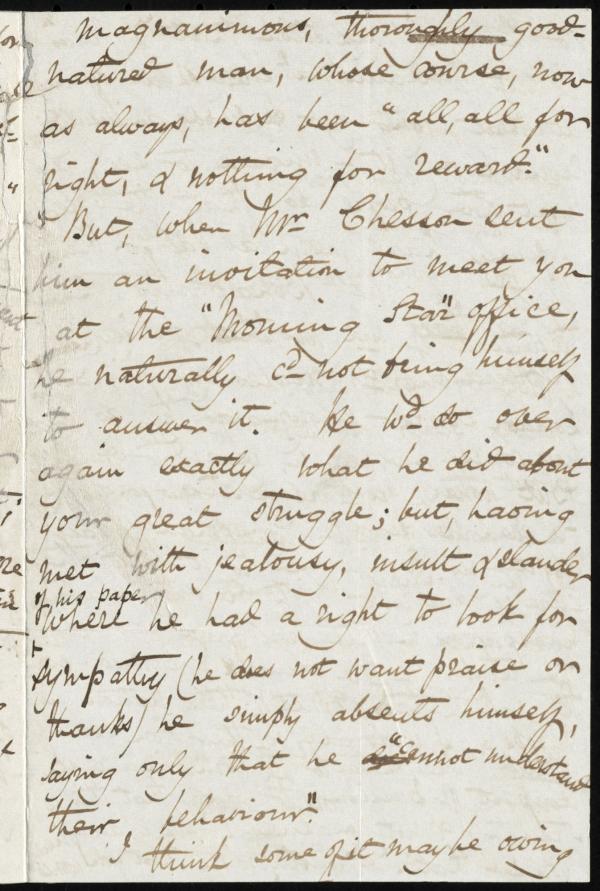 magnanimous, thoroughly good-
natured man, whose course, now
as always, has been "all, all for
right, & nothing for reward."
But, when Mr Chesson sent
him an invitation to meet you
at the "Morning Star" office,
he naturally cd not bring himself
to answer it. He wd do over
again exactly what he did about
your great struggle; but, having
met with jealousy, insult & slander
of his paper
where he had a right to look for
sympathy (he does not want praise or
thanks) he simply absents himself,
saying only that he "cannot understand
their behaviour."
I think some of it may be owing